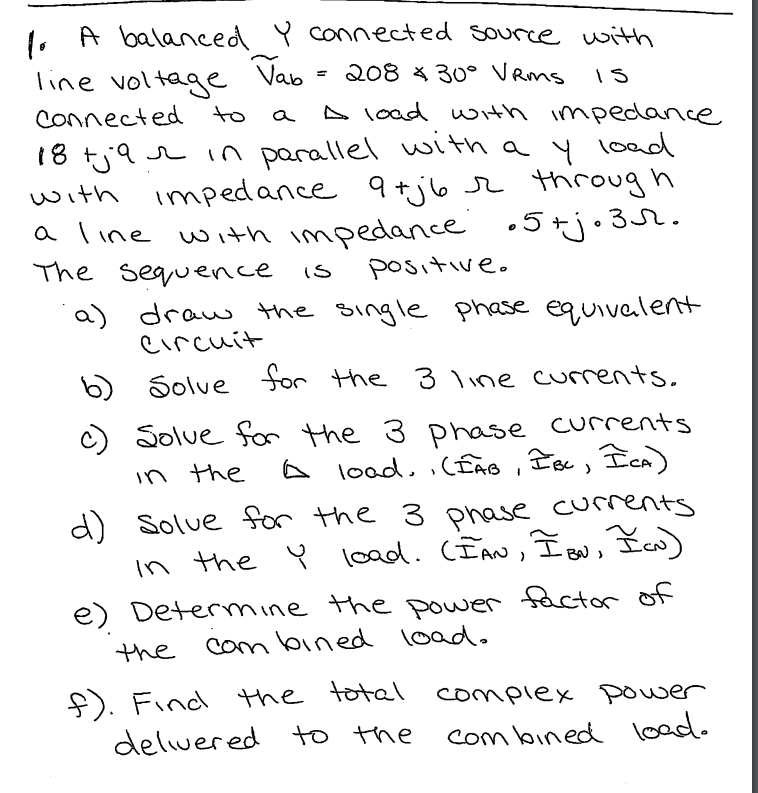 1. A balanced Y connected source with
line voltage Ṽab = 208 ∡ 30° VRms is
connected to a Δ load with impedance
18 + j9 Ω in parallel with a y load
with impedance 9 + j6 Ω through
a line with impedance .5 + j.3 Ω.
The sequence is positive.
a) draw the single phase equivalent
circuit
b) Solve for the 3 line currents.
c) Solve for the 3 phase currents
in the Δ load. (ĨAB, ĨBC, ĨCA)
d) Solve for the 3 phase currents
in the Y load. (ĨAN, ĨBN, ĨCN)
e) Determine the power factor of
the combined load.
f). Find the total complex power
delivered to the combined load.